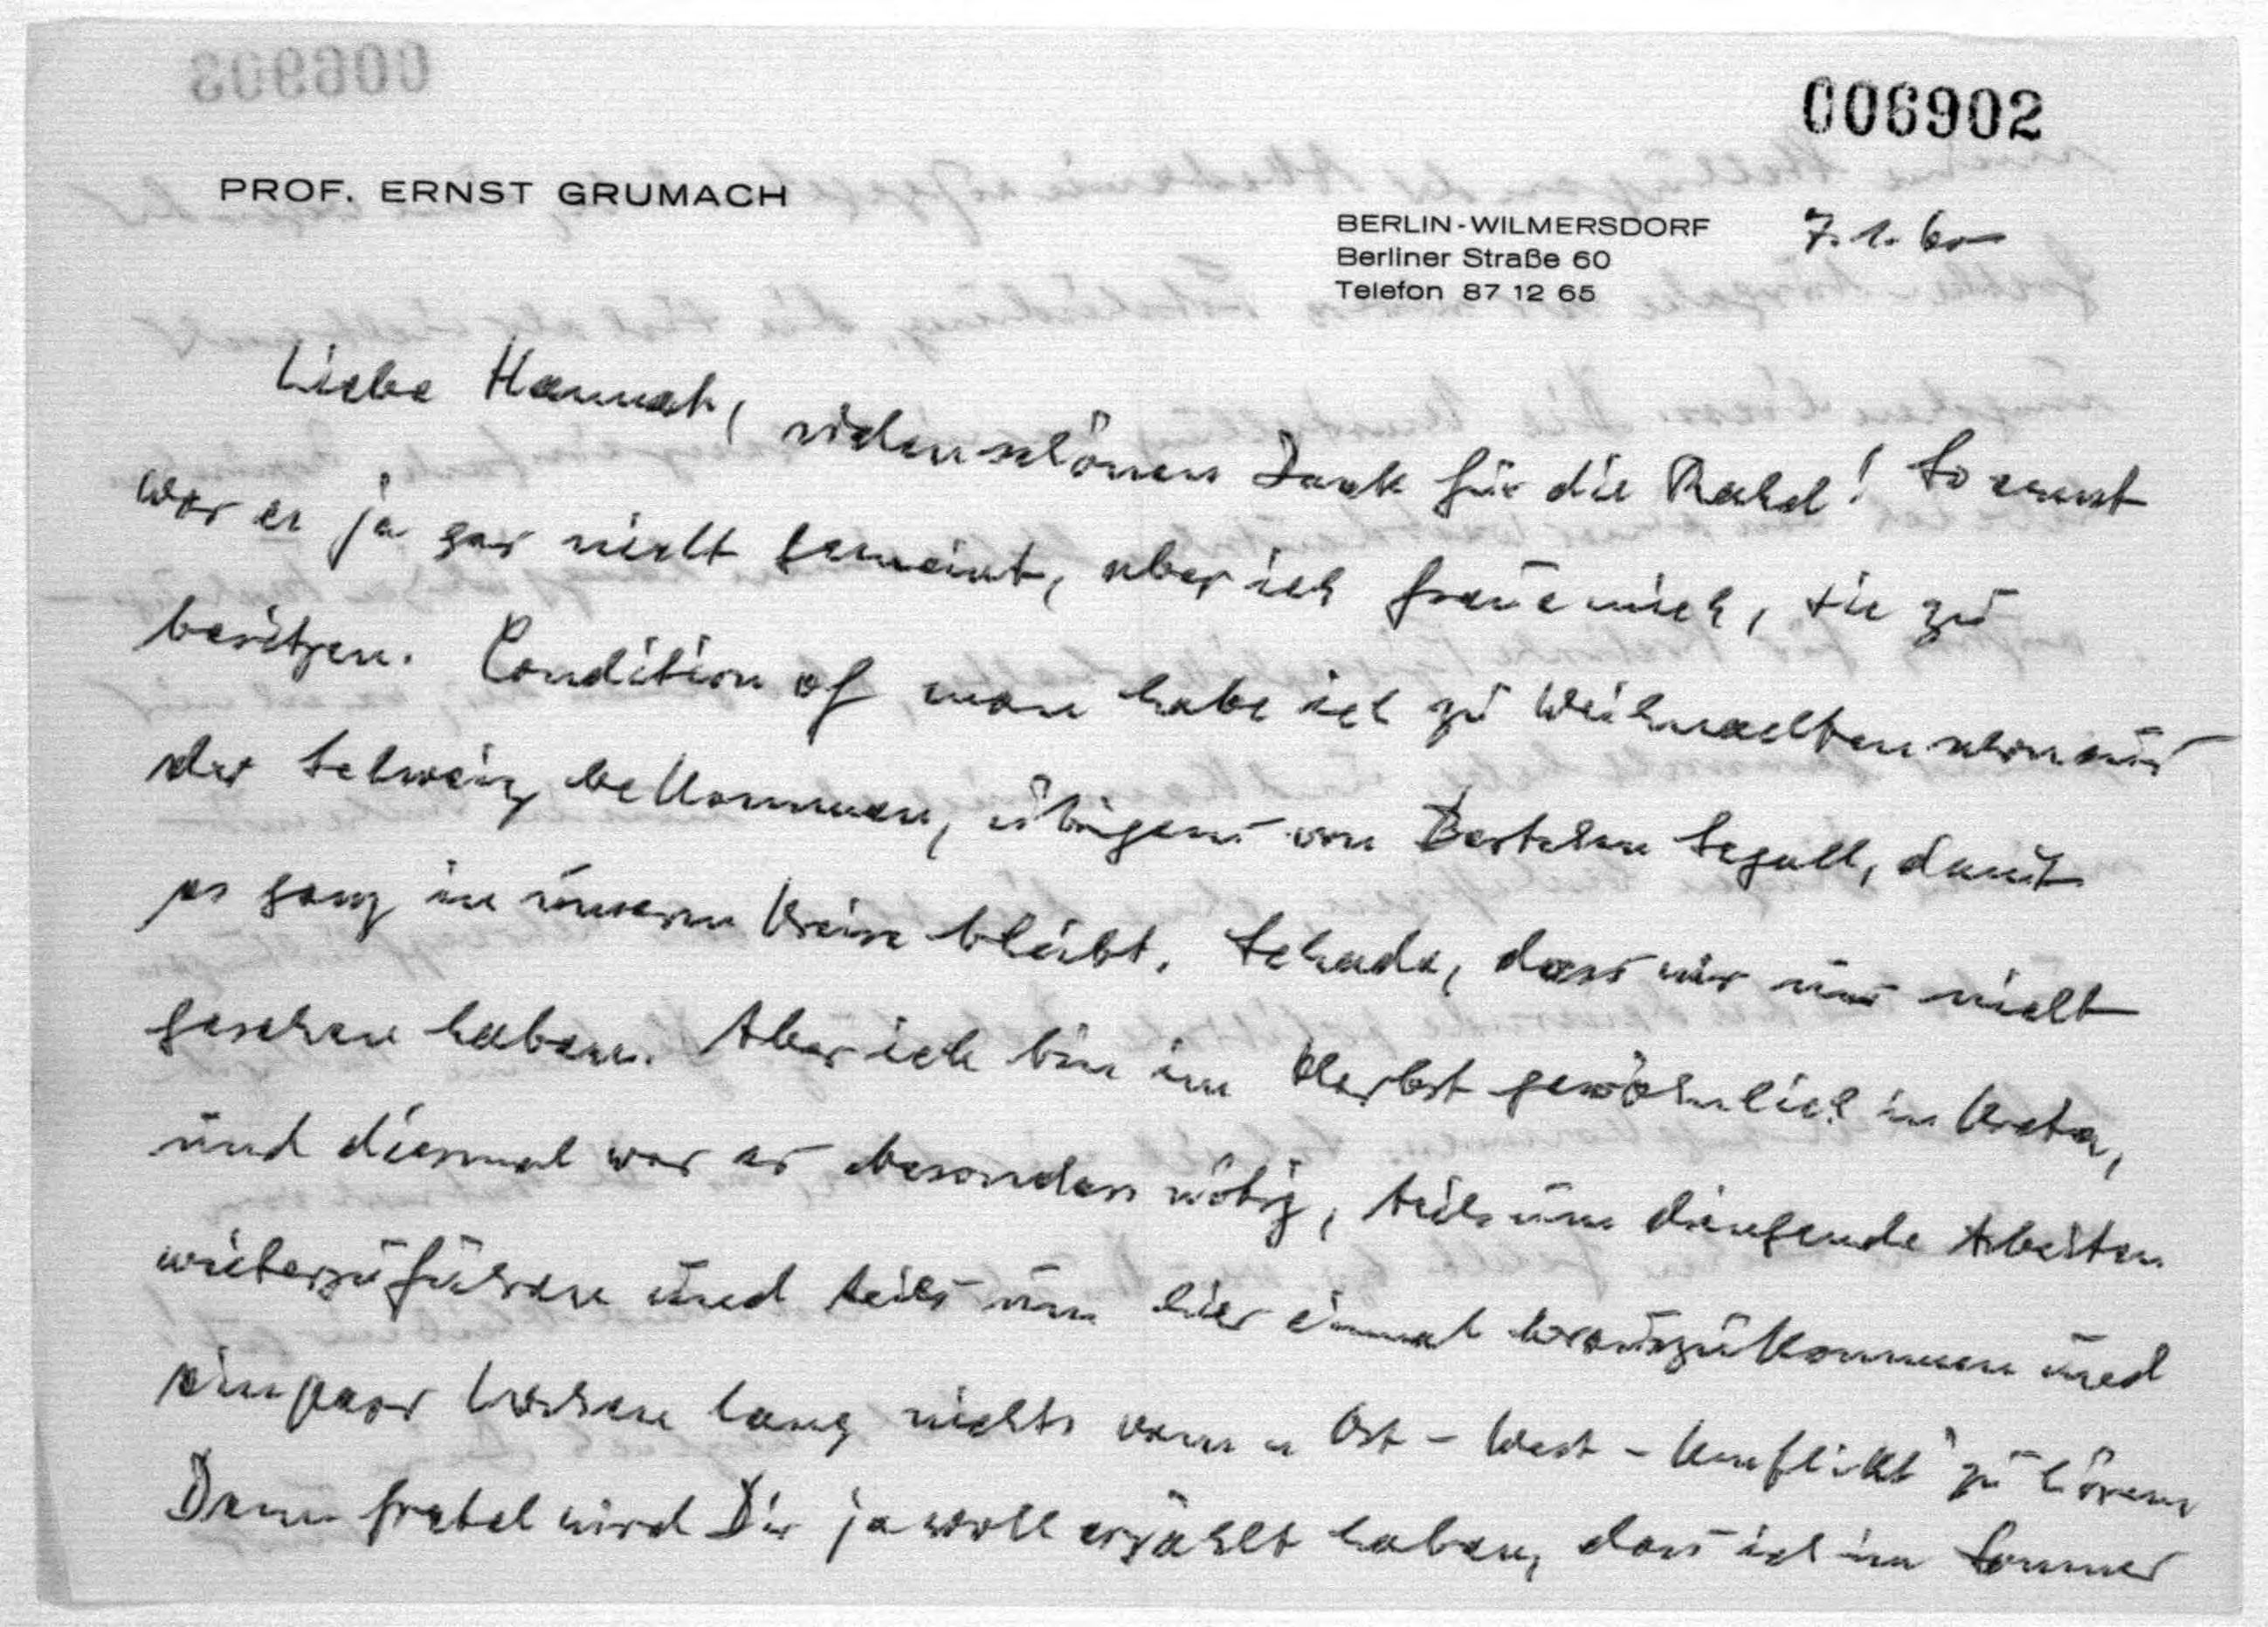 006902
PROF. ERNST GRUMACH
BERLIN-WILMERSDORF
Berliner Straße 60
Telefon 87 12 65
7.1.60
Liebe Hannah, vielen schönen Dank für die Rahel! So ernst
war es ja gar nicht gemeint, aber ich freue mich, sie zu
besitzen. Condition of man habe ich zu Weihnachten schon aus
der Schweiz bekommen, übrigens von Segall, damit
es ganz in unserm Kreise bleibt. Schade, dass wir uns nicht
gesehen haben. Aber ich bin im Herbst gewöhnlich in Kreta,
und diesmal war es besonders nötig, teils um Arbeiten
weiterzuführen und teils um hier einmal herauszukommen und
ein paar Wochen lang nichts vom „Ost-West-Konflikt" zu hören
Denn wird Dir ja wohl erzählt haben, dass ich im Sommer